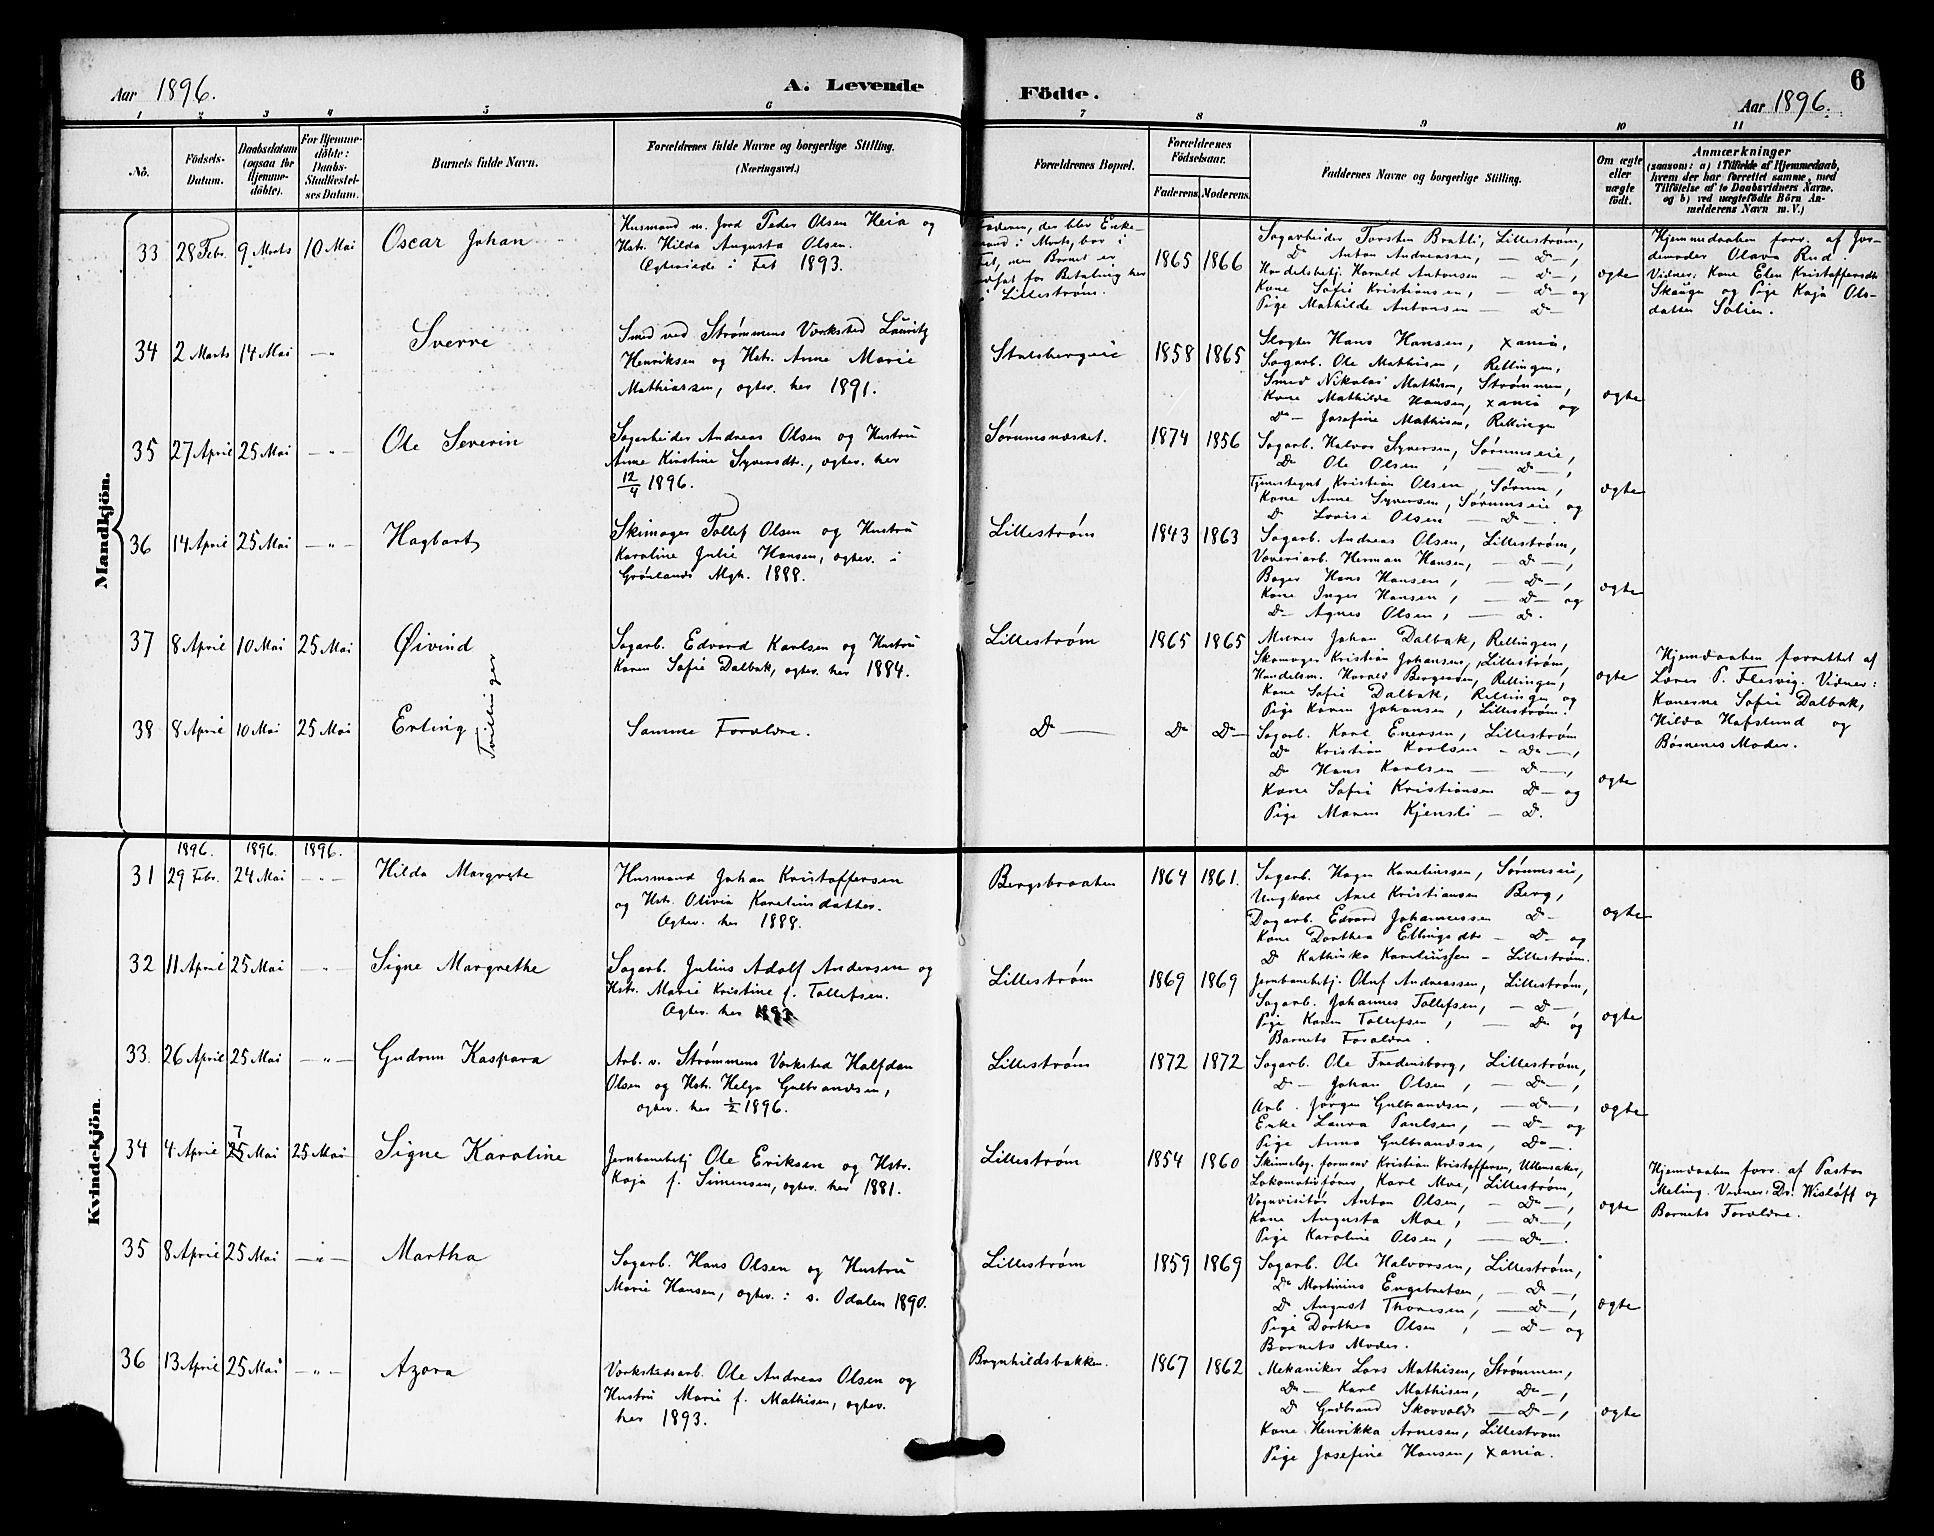 Aar 1896.
A. Levende
Födte.
6
Aar 1896.
1 2 3 4 5 6 7 8 9 10 11
No.
Födsels-
Datum.
Daabsdatum
(ogsaa for
Hjemme-
döbte).
For Hjemme-
döbte:
Daabs-
Stadfæstel-
ses Datum.
Barnets fulde Navn.
Forældrenes fulde Navne og borgerlige Stilling.
(Næringsvei.)
Forældrenes Bopæl.
Forældrenes
Födselsaar.
Faderens. Moderens.
Faddernes Navne og borgerlige Stilling.
Om ægte
eller
uægte
födt.
Anmærkninger
(saasom: a) i Tilfælde af Hjemmedaab,
hvem der har forrettet samme, med
Tilföielse af to Daabsvidners Navne.
og b) ved uægtefödte Börn An-
melderens Navn m. V.)
Mandkjön.
33 28 Febr. 9 Marts 10 Mai
Oscar Johan
Husmand m. Jord Peder Olsen Heia og
Hstr. Hilda Augusta Olsen.
Ægteviede i Fet 1893.
Faderen, der blev Enke-
mand i Marts, bor i
Fet, men Barnet er
for Betaling her
i Lillestrøm.
1865 1866
Sagarbeider Torsten Bratli, Lillestrøm,
Do Anton Andreassen, — Do —,
Handelsbetj. Harald Antonsen — Do —,
Kone Sofie Kristiansen, — Do — og
Pige Mathilde Antonsen — Do —
ægte
Hjemmedaaben forr. af Jor-
demoder Olava Rud.
Vidner: Kone Elen Kristoffersdtr
Skauge og Pige Kaja Ols-
datter Solien.
34 2 Marts 14 Mai — " —
Sverre
Smed ved Strømmens Værksted Lauritz
Henriksen og Hstr. Anne Marie
Mathiassen, ægtev. her 1891.
Stalsbergeie
1858 1865
Slagter Hans Hansen, Xania,
Sagarb. Ole Mathisen, Rellingen,
Smed Nikolai Mathisen, Strømmen,
Kone Mathilde Hansen, Xania og
Do — Josefine Mathisen, Rellingen
ægte
35 27 April 25 Mai — " —
Ole Severin
Sagarbeider Andreas Olsen og Hustru
Anne Kirstine Syversdtr., ægtev. her
12/4 1896.
Sørumsnæsset.
1874 1856
Sagarb. Halvor Syversen, Sørumseie,
Do Ole Olsen, — Do —,
Tjenestegut Kristian Olsen, Sørum,
Kone Anne Syversen, Sørumseie og
Do Lovise Olsen — Do —.
ægte
36 14 April 25 Mai — " —
Hagbart
Skomager Tollef Olsen og Hustru
Karoline Julie Hansen, ægtev. i
Grønlands Mgh. 1888.
Lillestrøm
1843 1863
Sagarb. Andreas Olsen, Lillestrøm,
Væveriarb. Herman Hansen, — Do —,
Bager Hans Hansen, — Do —,
Kone Inger Hansen, — Do — og
Do — Agnes Olsen, — Do.
ægte
37 8 April 10 Mai 25 Mai
Øivind
Tvillinger
Sagarb. Edvard Karlsen og Hustru
Karen Sofie Dalbak, ægtev. her 1884.
Lillestrøm
1865 1865
Murer Johan Dalbak, Rellingen,
Skomager Kristian Johansen, Lillestrøm,
Handelsm. Harald Bergersen, Rellingen,
Kone Sofie Dalbak, Rellingen og
Pige Karen Johansen, Lillestrøm.
ægte
Hjemdaaben forrettet af
Lærer P. Flesvig. Vidner:
Konerne Sofie Dalbak,
Hilda Hafslund og
Børnenes Moder.
38 8 April 10 Mai 25 Mai
Erling
Samme Forældre.
Do —
Do Do —
Sagarb. Karl Enersen, Lillestrøm
Do Kristian Karlsen — Do —,
Do Hans Karlsen — Do —,
Kone Sofie Kristiansen Do — og
Pige Maren Kjensli — Do.
ægte
Kvindekjön.
1896. 1896. 1896.
31 29 Febr. 24 Mai — " —
Hilda Margrete
Husmand Johan Kristoffersen
og Hstr. Olivia Kareliusdatter.
Ægtev. her 1888.
Bergsbraaten
1864 1861.
Sagarb. Hagen Kareliussen, Sørumseie,
Ungkarl Axel Kristiansen Berg,
Dagarb. Edvard Johannessen Do —
Kone Dorthea Ellingsdtr — Do — og
Do Kathinka Kareliussen — Lillestrøm.
ægte
32 11 April 25 Mai — " —
Signe Margrethe
Sagarb. Julius Adolf Andersen og
Hstr. Marie Kristine f. Tollefsen.
Ægtev. her 1893.
Lillestrøm
1869 1869
Jernbanebetj. Oluf Andreassen, Lillestrøm,
Sagarb. Johannes Tollefsen, — Do —,
Pige Karen Tollefsen, — Do og
Barnets Forældre.
ægte
33. 26 April 25 Mai — " —
Gudrun Kaspara
Arb. v. Strømmens Værksted Halfdan
Olsen og Hstr. Helga Gulbrandsen,
ægtev. her 1/2 1896.
Lillestrøm
1872 1872
Sagarb. Ole Fredensborg, Lillestrøm,
Do — Johan Olsen, — Do —,
Arb. Jørgen Gulbrandsen, — Do —,
Enke Laura Paulsen, — Do — og
Pige Anna Gulbrandsen, Do —.
ægte
34 4 April 7 25 Mai 25 Mai
Signe Karoline
Jernbanebetj Ole Eriksen og Hstr.
Kaja f. Simensen, ægtev. her 1881.
Lillestrøm
1854 1860
Skinnelæg.formand Kristian Kristoffersen, Ullensaker,
Lokomotivfører Karl Moe, Lillestrøm,
Vognvisitør Anton Olsen, — Do —,
Kone Augusta Moe, — Do —,
Pige Karoline Olsen, — Do —.
ægte
Hjemdaaben forr. af Pastor
Meling. Vidner: Dr. Wisløff og
Barnets Forældre.
35 8 April 25 Mai — " —
Martha
Sagarb. Hans Olsen og Hustru
Marie Hansen, ægtev. i s. Odalen 1890.
Lillestrøm
1859 1869
Sagarb. Ole Halvorsen, Lillestrøm,
Do Martinius Engebretsen, — Do —,
Do August Thoresen, — Do —,
Pige Dorthea Olsen, — Do — og
Barnets Moder.
ægte
36 13 April 25 Mai — " —
Azora
Værkstedsarb. Ole Andreas Olsen og
Hustru Marie f. Mathisen, ægtev.
her 1893.
Brynhildsbakken.
1867 1862
Mekaniker Lars Mathisen, Strømmen,
Do — Karl Mathisen, Do —,
Do Gudbrand Skovvold — Do —,
Kone Henrikka Arnesen, Lillestrøm
Pige Josefine Hansen, Xania.
ægte